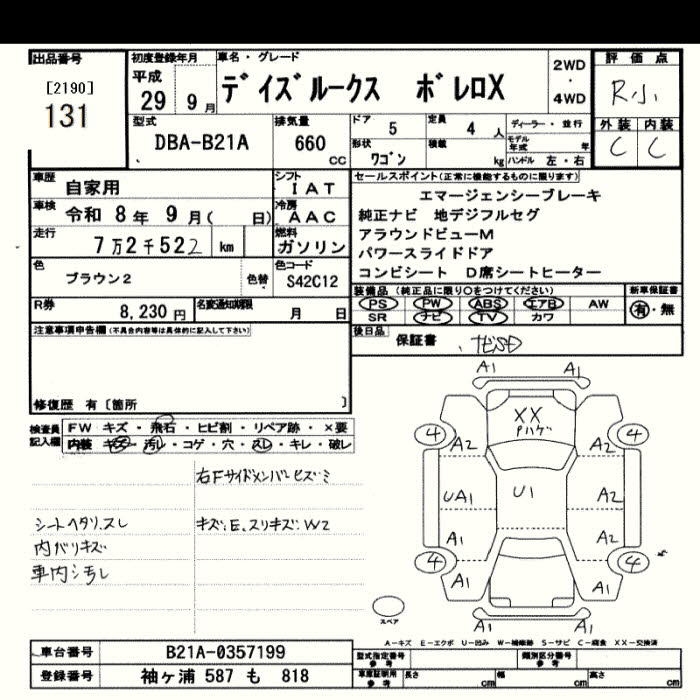 出品番号
[2190]
131
初度登録年月
平成
29 9月
車名・グレード
デイズルークス ボレロX
2WD
・
4WD
評価点
R小
外装 内装
C C
型式
DBA-B21A
排気量
660
CC
ドア 5
定員 4 人
形状 ワゴン
積載 kg
ディーラー・並行
モデル年式 年
ハンドル 左・右
車歴 自家用
シフト IAT
車検 令和 8年 9月( 日)
冷房 AAC
走行 7万2千522 km
燃料 ガソリン
色 ブラウン2
色替
色コード S42C12
R券 8,230円
名変通知期限 月 日
セールスポイント(正常に機能するものに限ります)
エマージェンシーブレーキ
純正ナビ 地デジフルセグ
アラウンドビューM
パワースライドドア
コンビシート D席シートヒーター
装備品(純正品に限り○をつけてください)
新車保証書
PS PW ABS エアB AW
SR ナビ TV カワ
有・無
後日品
保証書
注意事項申告欄(不具合内容等は具体的に記入して下さい)
修復歴 有〔箇所 〕
検査員記入欄
FW キズ・飛石・ヒビ割・リペア跡・×要
内装 キズ・汚レ・コゲ・穴・スレ・キレ・破レ
右Fサイドメンバーヒズミ
シートヘタリ.スレ
キズ.E.スリキズ.W2
内バリキズ
車内汚レ
A1 A1
XX
Pハゲ
4 4
A2 A2
UA1 U1 A2
A1 A2
4 4
A1 A1
A1 A1
スペア
A-キズ E-エクボ U-凹み W-補修跡 S-サビ C-腐食 XX-交換済
車台番号 B21A-0357199
登録番号 袖ヶ浦 587 も 818
型式指定番号 参考
類別区分番号 参考
車庫証明用 参考
長さ cm
幅 cm
高さ cm